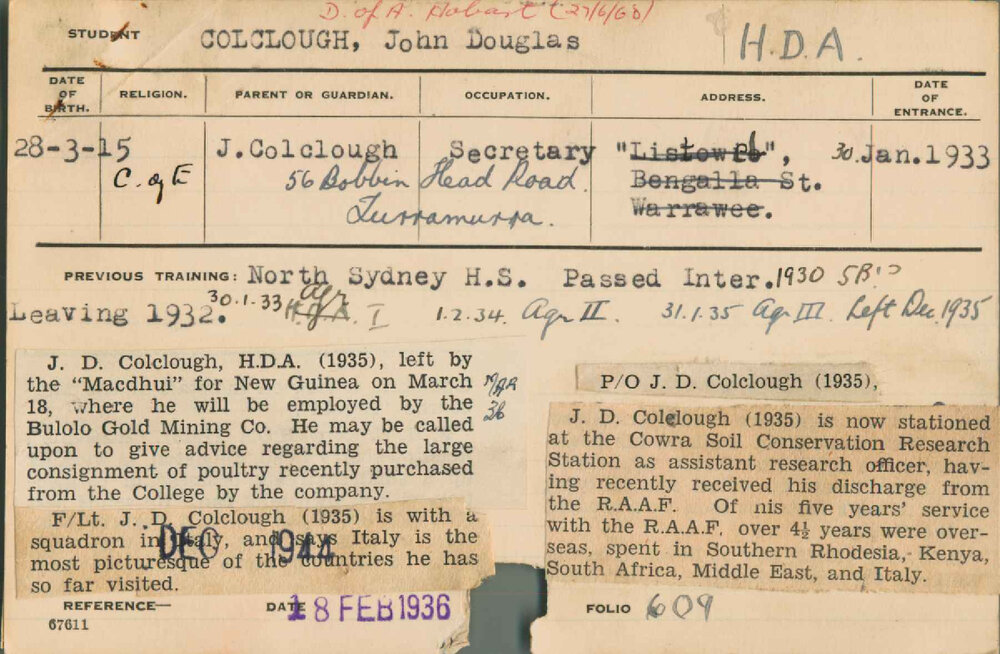 D. of A. Hobart (27/6/60)
STUDENT COLCLOUGH, John Douglas H.D.A.
DATE OF BIRTH. RELIGION. PARENT OR GUARDIAN. OCCUPATION. ADDRESS. DATE OF ENTRANCE.
28-3-15 J.Colclough Secretary "Listow", 30.Jan.1933
C. of E 56 Bobbin Head Road. Bengalla St.
Turramurra. Warrawee.
PREVIOUS TRAINING: North Sydney H.S. Passed Inter.1930 5B
Leaving 1932. 30.1.33 Agr I 1.2.34. Agr II. 31.1.35 Agr III. Left Dec. 1935
J. D. Colclough, H.D.A. (1935), left by
the "Macdhui" for New Guinea on March
18, where he will be employed by the
Bulolo Gold Mining Co. He may be called
upon to give advice regarding the large
consignment of poultry recently purchased
from the College by the company.
MAR
36
F/Lt. J. D. Colclough (1935) is with a
squadron in Italy, and says Italy is the
most picturesque of the countries he has
so far visited.
DEC 1944
P/O J. D. Colclough (1935),
J. D. Colclough (1935) is now stationed
at the Cowra Soil Conservation Research
Station as assistant research officer, hav-
ing recently received his discharge from
the R.A.A.F. Of his five years' service
with the R.A.A.F. over 4½ years were over-
seas, spent in Southern Rhodesia, Kenya,
South Africa, Middle East, and Italy.
REFERENCE— DATE 18 FEB 1936 FOLIO 609
67611